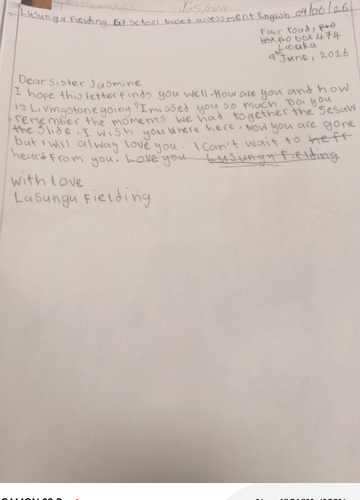 Lusungu Fielding G7 School based assessment English 09/06/26
Fair road,
box po box 474
Lusaka
9th June, 2026
Dear Sister Jasmine
I hope this letter finds you well. How are you and how
is Livingstone going "I missed you so much. Do, you
remember the moments we had together the Sesaw
the Slide. I wish you where here, Now you are gone
but I will allway love you. I can't wait to
heard from you. Love you Lusungu Fielding
with love
Lusungu Fielding